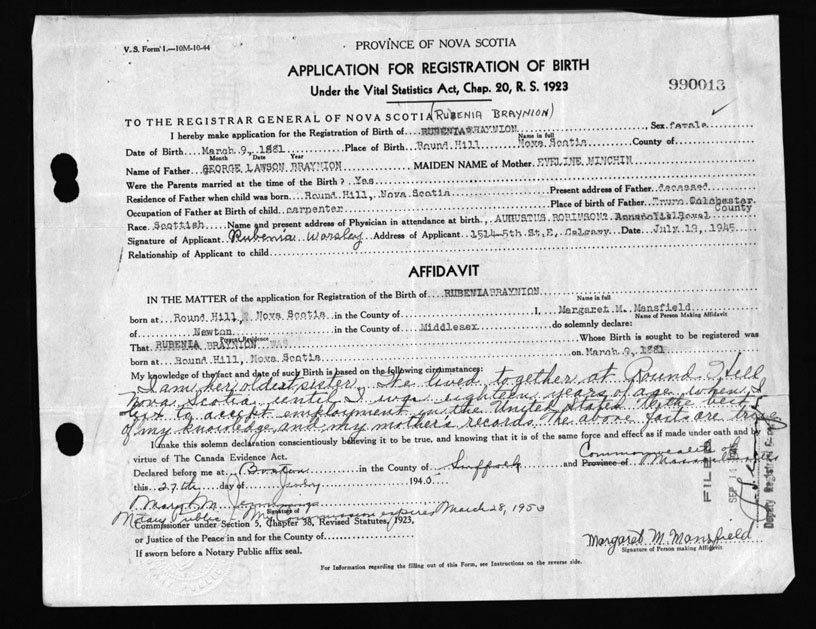 V. S. Form 1.—10M-10-44
PROVINCE OF NOVA SCOTIA
APPLICATION FOR REGISTRATION OF BIRTH
Under the Vital Statistics Act, Chap. 20, R. S. 1923
990013
(RUBENIA BRAYNION)
TO THE REGISTRAR GENERAL OF NOVA SCOTIA
I hereby make application for the Registration of Birth of RUBENIA BRAYNION Sex female
Name in full
Date of Birth March 9, 1881 Place of Birth Round Hill Nova Scotia County of
Month Date Year
Name of Father GEORGE LAWSON BRAYNION MAIDEN NAME of Mother EVELINE MINCHIN
Were the Parents married at the time of the Birth? Yes
Residence of Father when child was born Round Hill, Nova Scotia Present address of Father deceased
Occupation of Father at Birth of child carpenter Place of birth of Father Truro Colchester County
Race Scottish Name and present address of Physician in attendance at birth, AUGUSTUS ROBINSON? Royal
Signature of Applicant Rubenia Worsley Address of Applicant 1514-5th St, E, Calgary Date July 19, 1945
Relationship of Applicant to child
AFFIDAVIT
IN THE MATTER of the application for Registration of the Birth of RUBENIA BRAYNION
Name in full
born at Round Hill, Nova Scotia in the County of I, Margaret M. Mansfield
Name of Person Making Affidavit
of Newton in the County of Middlesex do solemnly declare:
Present Residence
That RUBENIA BRAYNION WAS Whose Birth is sought to be registered was
born at Round Hill, Nova Scotia on March 9, 1881
My knowledge of the fact and date of such Birth is based on the following circumstances:
I am her oldest sister. We lived together at Round Hill
Nova Scotia until I was eighteen years of age when I
left to accept employment in the United States. To the best
of my knowledge and my mother's records the above facts are true
I make this solemn declaration conscientiously believing it to be true, and knowing that it is of the same force and effect as if made under oath and by
virtue of The Canada Evidence Act.
Declared before me at Boston in the County of Suffolk and Province of Commonwealth of Massachusetts
this 27th day of 194
Mary M.
Signature of
Notary Public My Commission expires March 28, 1950
Commissioner under Section 5, Chapter 38, Revised Statutes, 1923,
or Justice of the Peace in and for the County of
If sworn before a Notary Public affix seal.
Margaret M. Mansfield
Signature of Person making Affidavit
FILED
SEP
Deputy
For Information regarding the filling out of this Form, see Instructions on the reverse side.